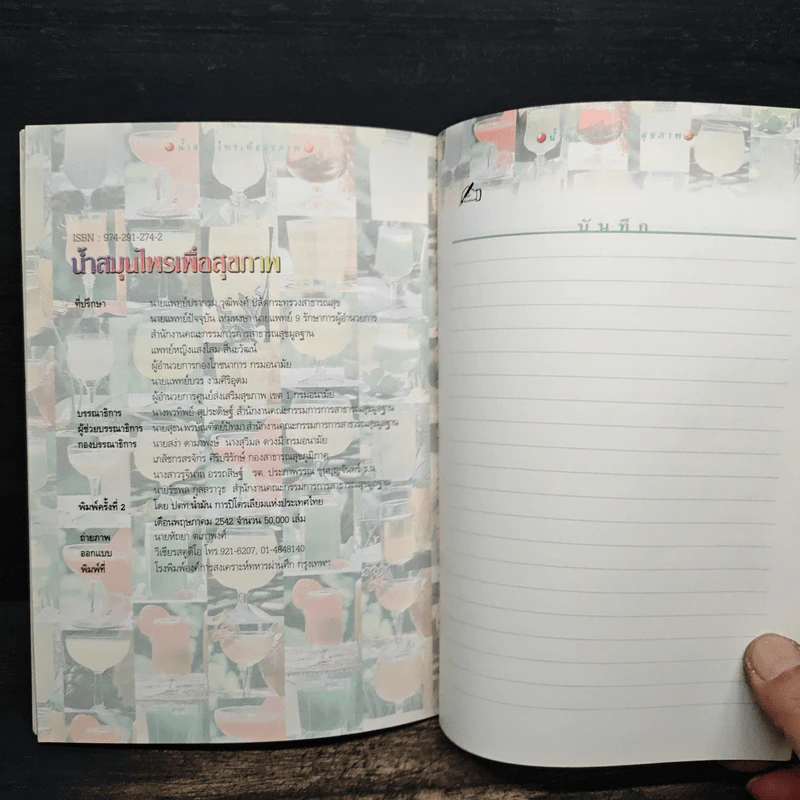 น้ำสมุนไพรเพื่อสุขภาพ
ISBN : 974-291-274-2
น้ำสมุนไพรเพื่อสุขภาพ
ที่ปรึกษา นายแพทย์ปรากรม วุฒิพงศ์ ปลัดกระทรวงสาธารณสุข
นายแพทย์ปัจจุบัน เหมหงษา นายแพทย์ 9 รักษาการผู้อำนวยการ
สำนักงานคณะกรรมการการสาธารณสุขมูลฐาน
แพทย์หญิงแสงโสม สีนะวัฒน์
ผู้อำนวยการกองโภชนาการ กรมอนามัย
นายแพทย์บวร งามศิริอุดม
ผู้อำนวยการศูนย์ส่งเสริมสุขภาพ เขต 1 กรมอนามัย
บรรณาธิการ นางพรทิพย์ สุประดิษฐ์ สำนักงานคณะกรรมการการสาธารณสุขมูลฐาน
ผู้ช่วยบรรณาธิการ นายสุธน พรบัณฑิตย์ปัทมา สำนักงานคณะกรรมการการสาธารณสุขมูลฐาน
กองบรรณาธิการ นายสง่า ดามาพงษ์ นางสุวิมล ดวงมี กรมอนามัย
เภสัชกรสรจักร ศิริบริรักษ์ กองสาธารณสุขภูมิภาค
นางสาวรุจินาถ อรรถสิษฐ์ รต. ประภาพรรณ
สำนักงานคณะกรรมการการสาธารณสุขมูลฐาน
พิมพ์ครั้งที่ 2 โดย ปตท.น้ำมัน การปิโตรเลียมแห่งประเทศไทย
เดือนพฤษภาคม 2542 จำนวน 50,000 เล่ม
ถ่ายภาพ นายหัถยา
ออกแบบ วิเชียรสตูดิโอ โทร.921-6207, 01-4848140
พิมพ์ที่ โรงพิมพ์องค์การสงเคราะห์ทหารผ่านศึก กรุงเทพฯ
สุขภาพ
บันทึก